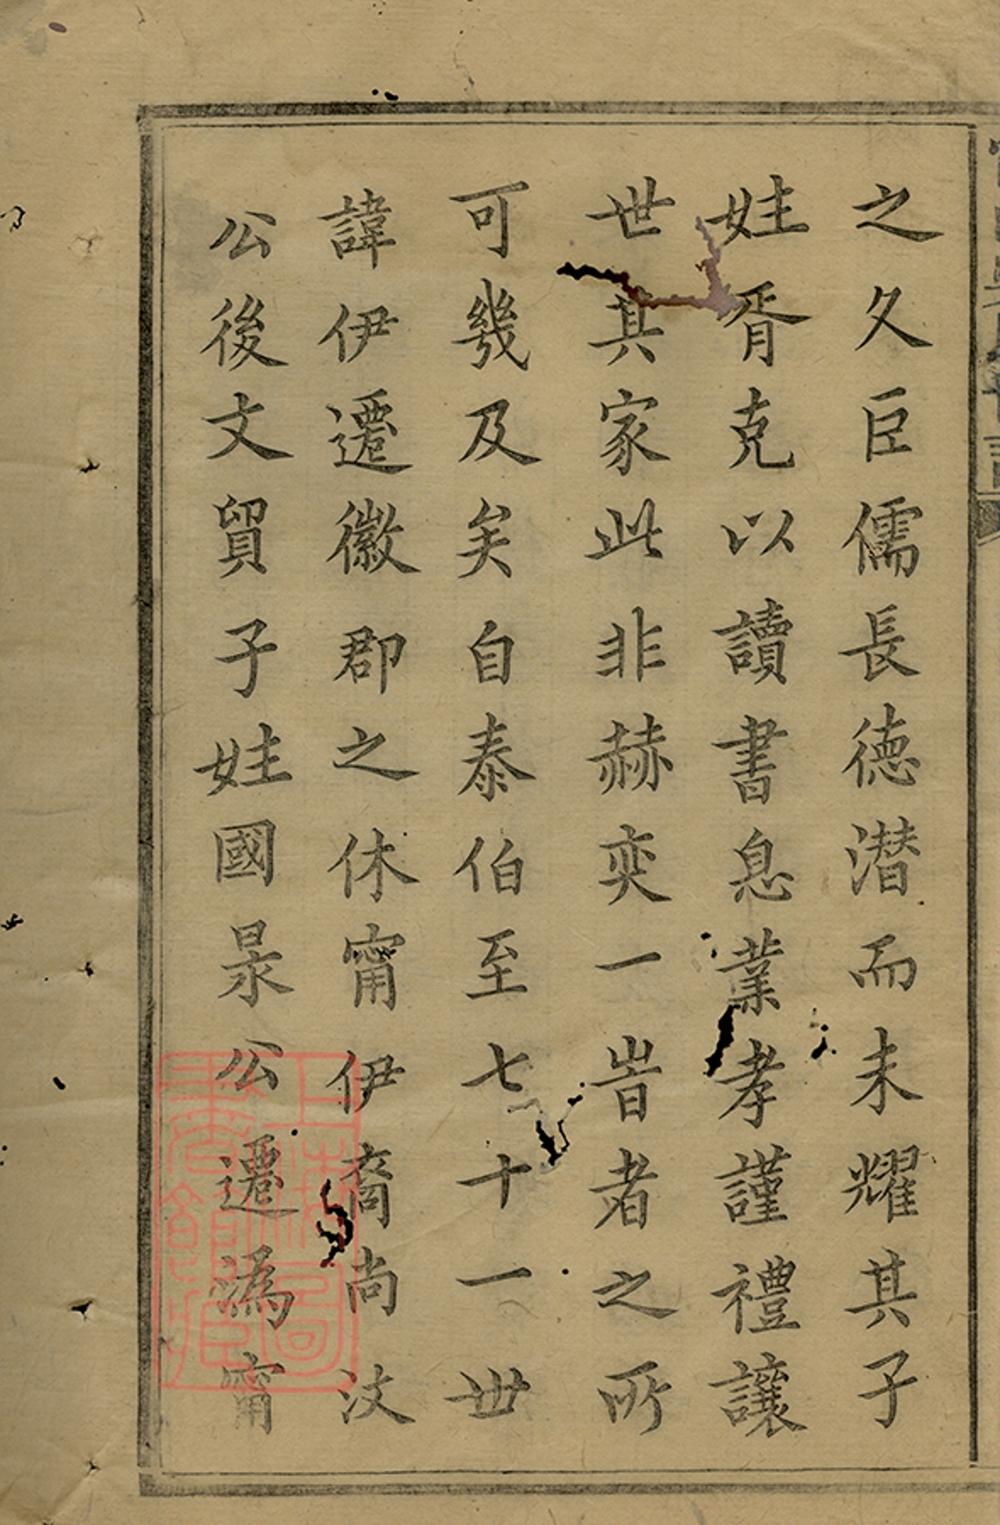 之久臣儒長德潛而未耀其子
姓胥克以讀書息業孝謹禮讓
世其家此非赫奕一旹者之所
可幾及矣自泰伯至七十一世
諱伊遷徽郡之休甯伊裔尚汶
公後文貿子姓國昶公遷潙甯
上海圖書館藏